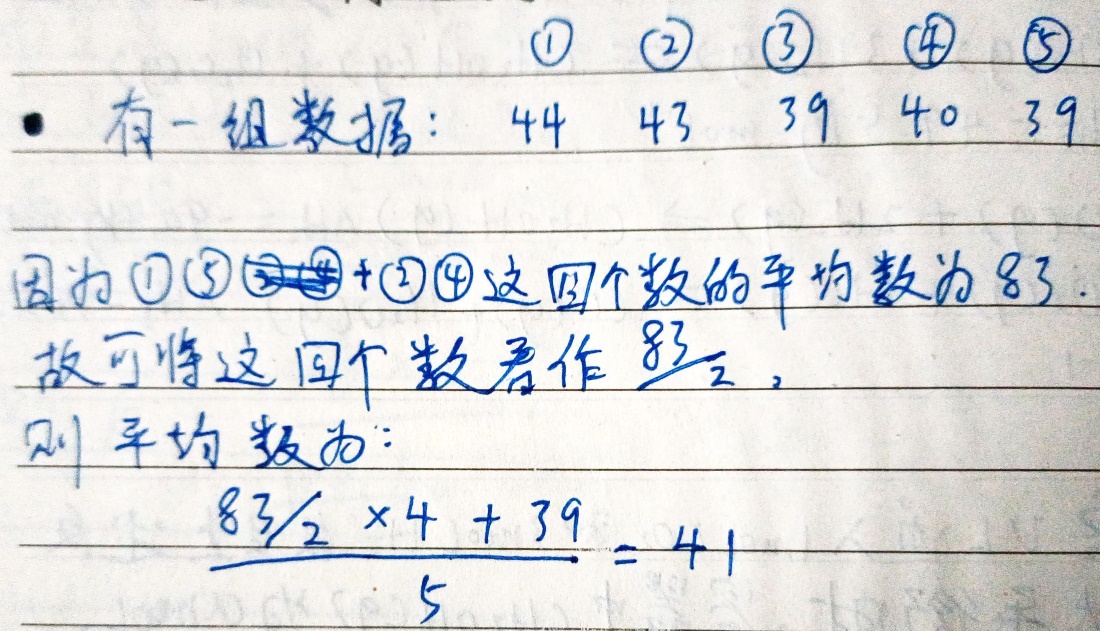 ① ② ③ ④ ⑤
• 有一组数据: 44 43 39 40 39
因为①⑤+②④这四个数的平均数为83.
故可将这四个数看作 83/2,
则平均数为:
83/2 ×4 + 39
= 41
5